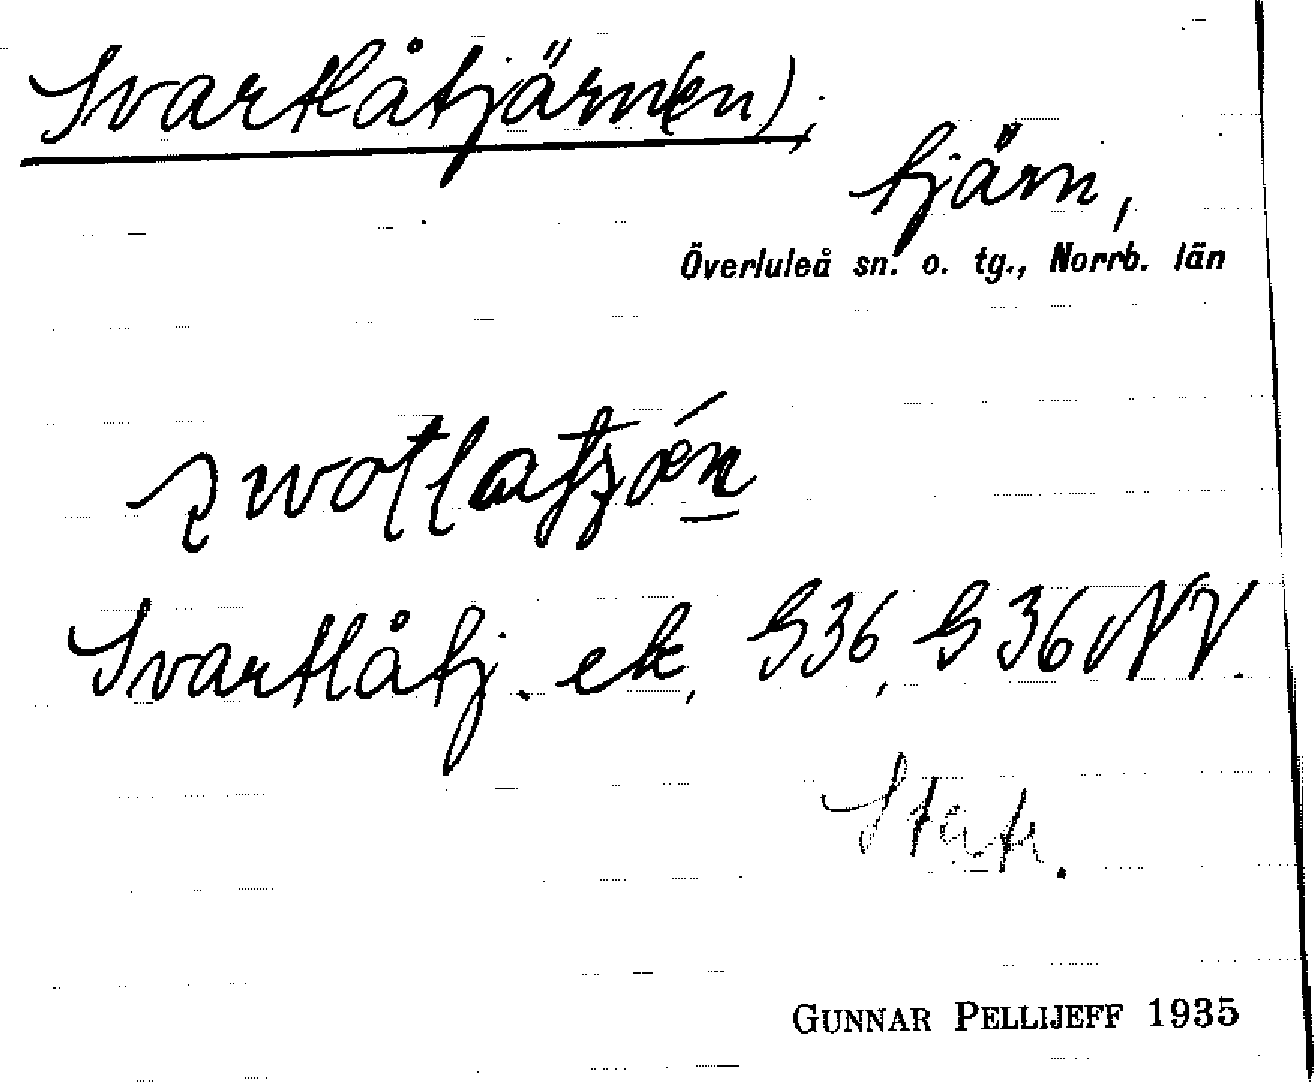 Svartlåtjärn(en),
tjärn,
Överluleå sn. o. tg., Norrb. län
Svartlåtj. ek, S36, S36NV.
GUNNAR PELLIJEFF 1935